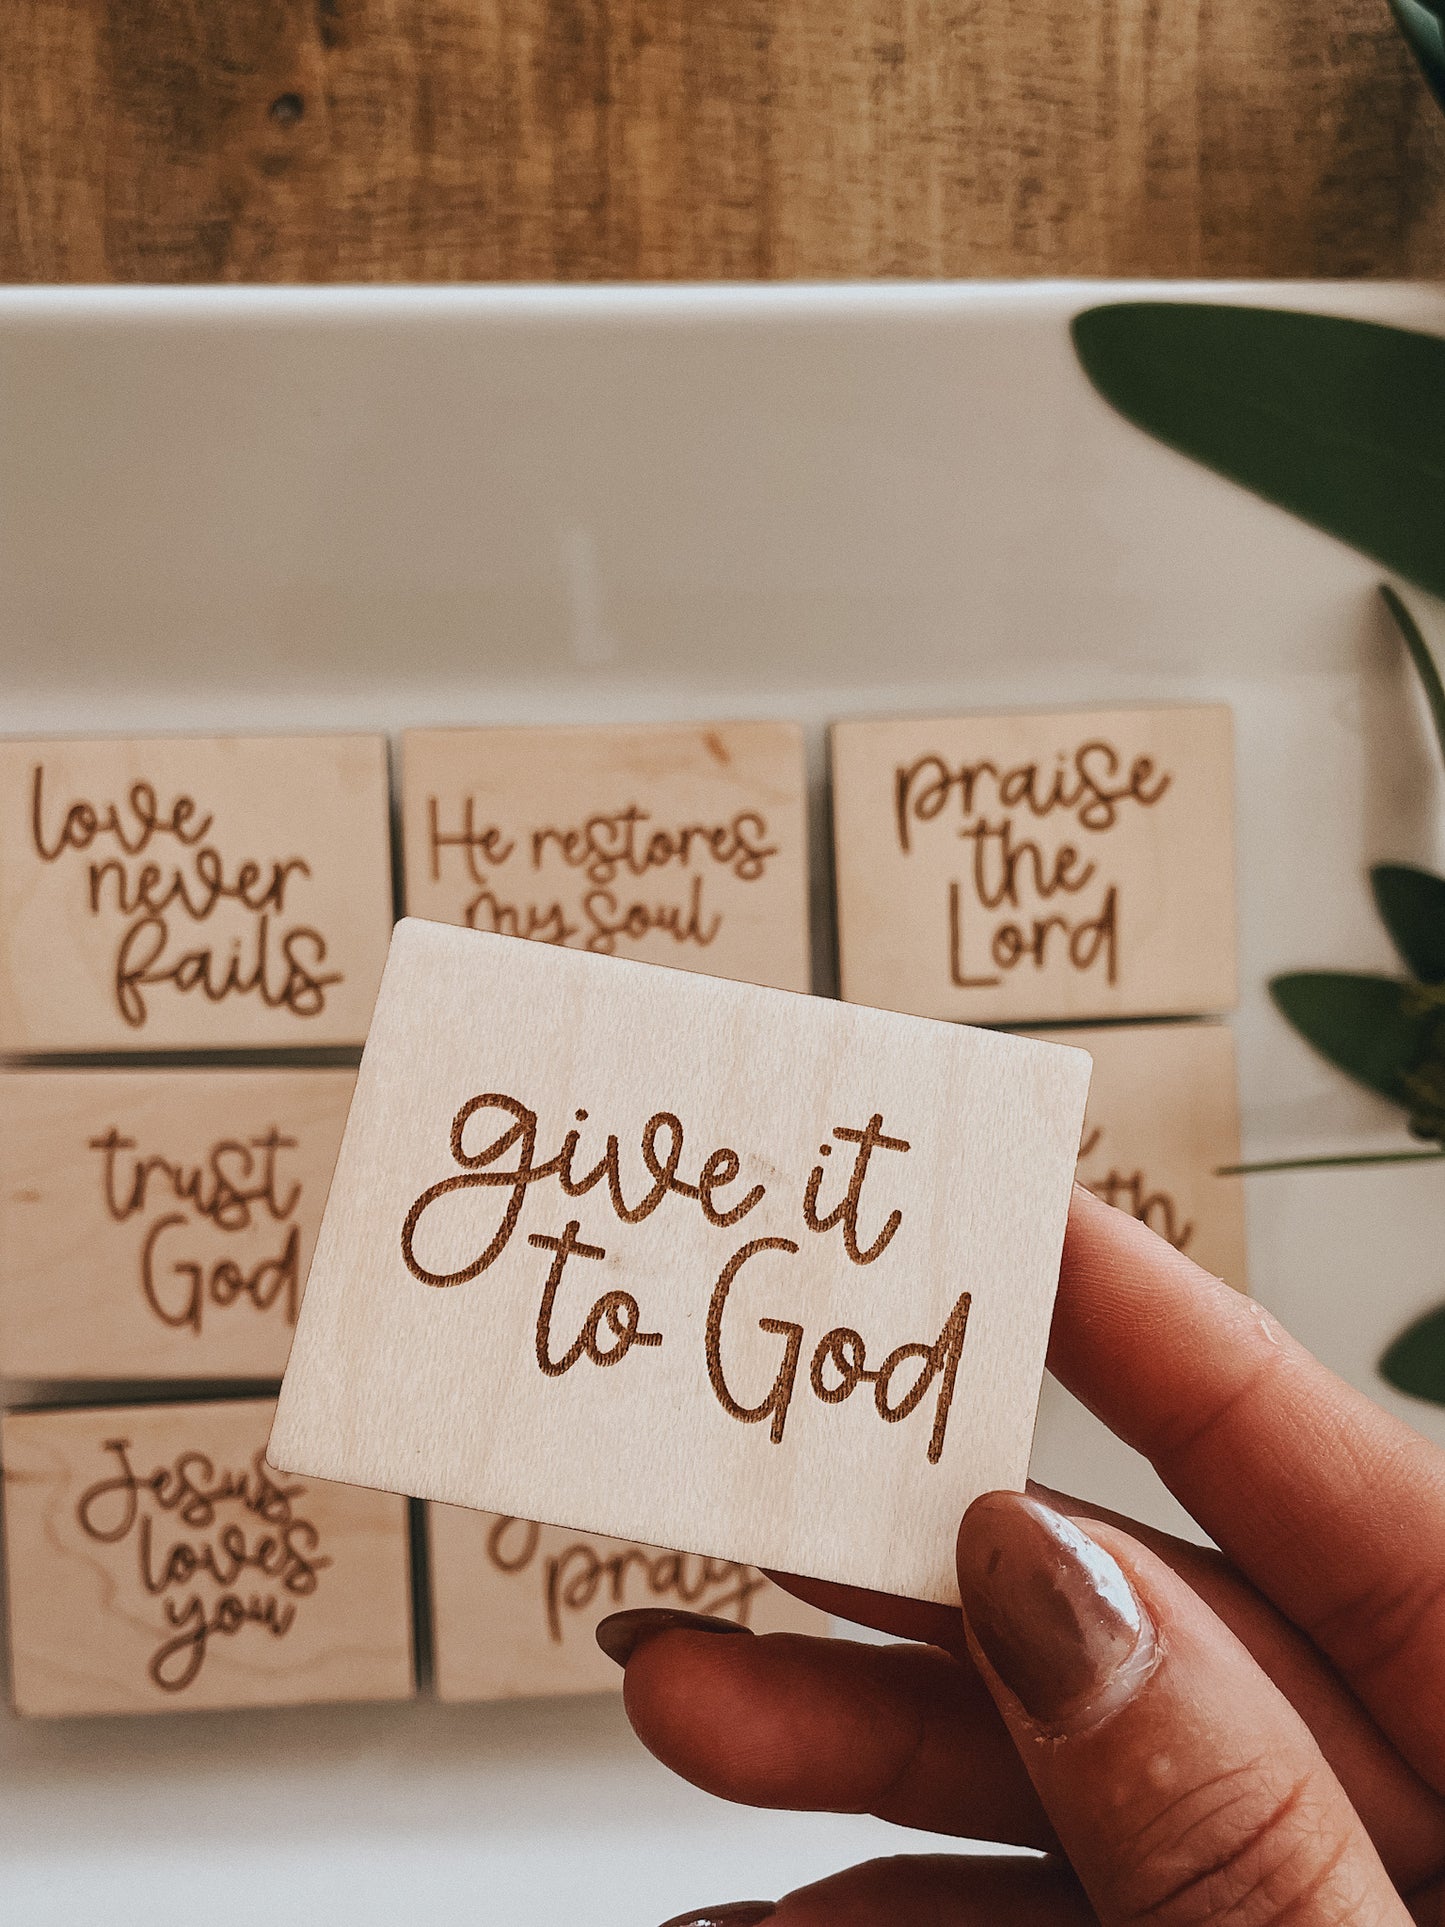 love
never
fails
He restores
my soul
praise
the
Lord
give it
to God
trust
God
Jesus
loves
you
pray